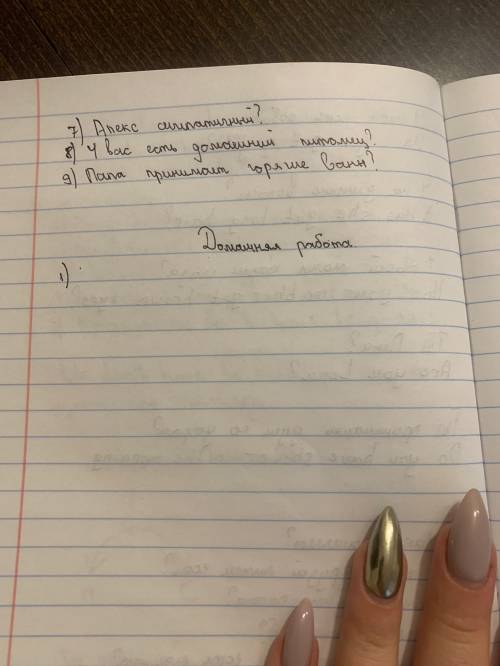 7) Алекс симпатичний?
8) У вас есть домашний питомец?
9) Папа принимает горяще ванн?
Домашняя работа.
1)